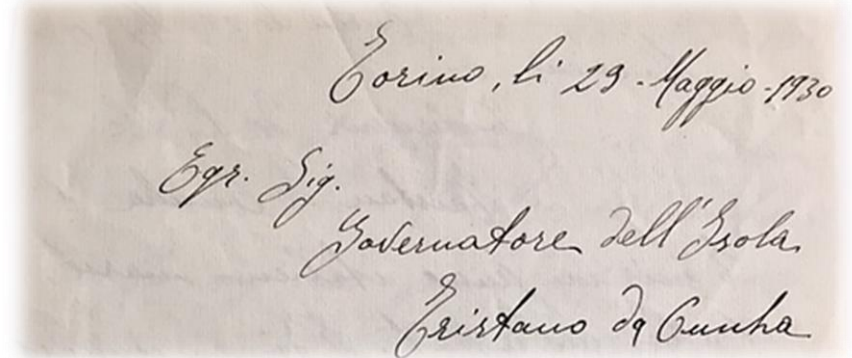 Torino, li 29-Maggio-1930
Egr. Sig.
Governatore dell'Isola
Tristano da Cunha